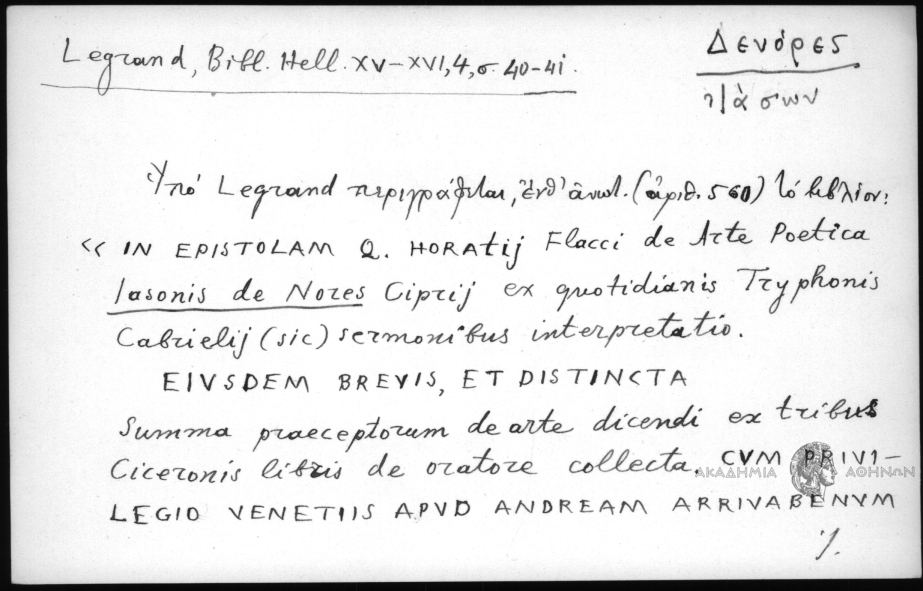 Legrand, Bibl. Hell. XV–XVI, 4, σ. 40-41.
Δενόρες
Ἰάσων
Ὑπό Legrand περιγράφεται, ἔνθ' ἀνωτ. (ἀριθ. 560) τό βιβλίον:
« IN EPISTOLAM Q. HORAtij Flacci de Arte Poetica
Iasonis de Nores Ciprij ex quotidianis Tryphonis
Cabrielij (sic) sermonibus interpretatio.
EIVSDEM BREVIS, ET DISTINCTA
Summa praeceptorum de arte dicendi ex tribus
Ciceronis libris de oratore collecta. CVM PRIVI-
LEGIO VENETIIS APVD ANDREAM ARRIVABENVM
ΑΚΑΔΗΜΙΑ ΑΘΗΝΩΝ